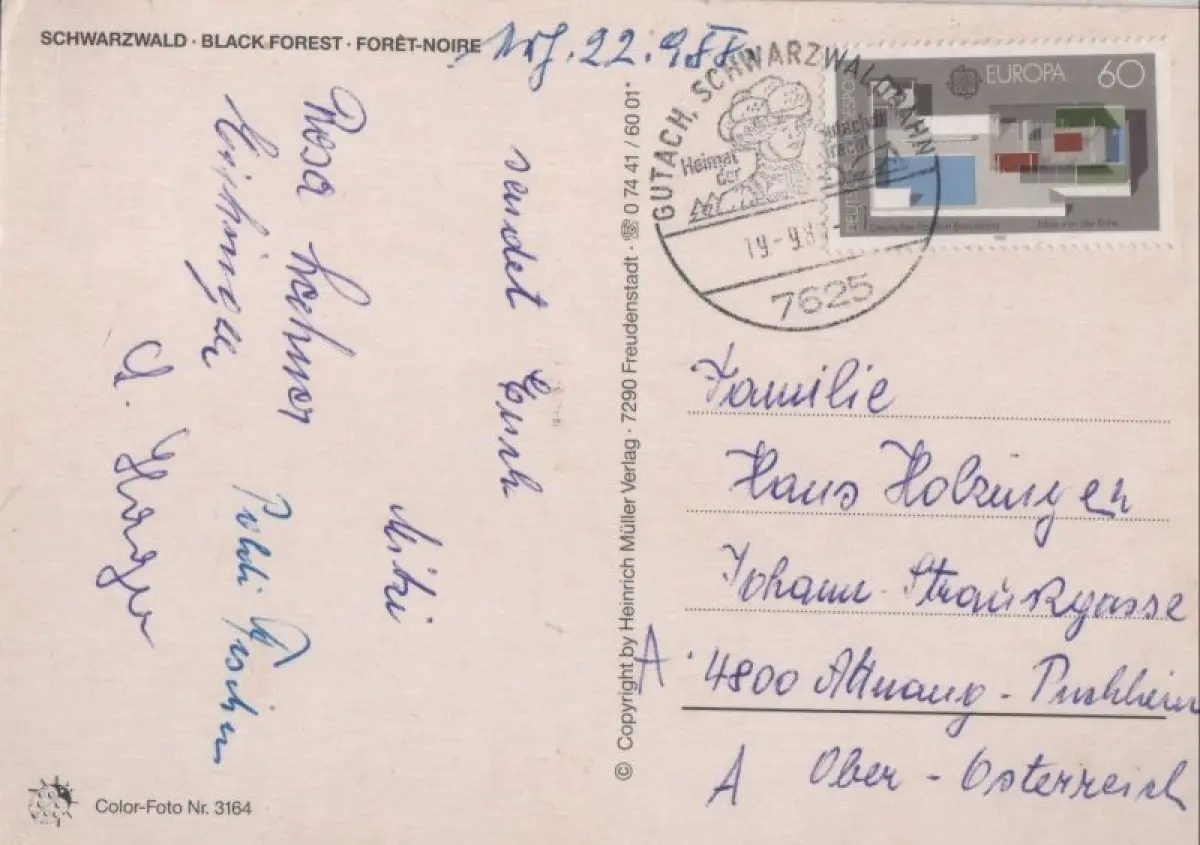 SCHWARZWALD · BLACK FOREST · FORÊT-NOIRE
22.9.88
sendet Euch
Mitzi
Rosa
Poldi
GUTACH, SCHWARZWALDBAHN
Heimat
der
19.-9.8
7625
EUROPA 60
DEUTSCHE BUNDESPOST
Mies van der Rohe
© Copyright by Heinrich Müller Verlag · 7290 Freudenstadt · ☎ 0 74 41 / 60 01*
Familie
Hans Holzinger
Johann-Straußgasse
A · 4800 Attnang - Puchheim
A Ober - Österreich
Color-Foto Nr. 3164